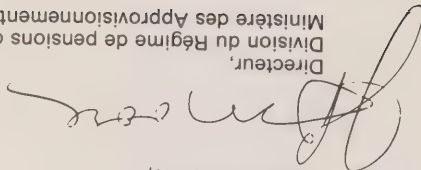 Directeur,
Division du Régime de pensions d
Ministère des Approvisionnement